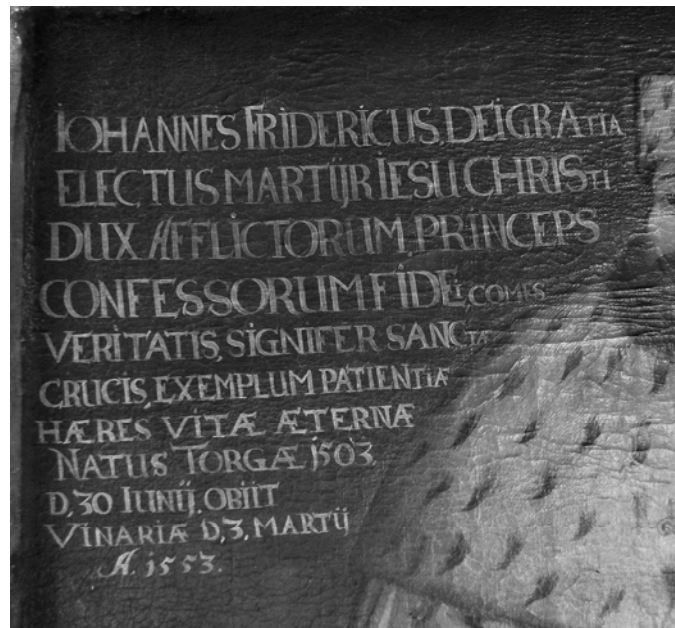 IOHANNES FRIDERICUS, DEI GRATIA
ELECTUS MARTIJR IESU CHRISTI
DUX AFFLICTORUM, PRINCEPS
CONFESSORUM FIDEI, COMES
VERITATIS, SIGNIFER SANCTÆ
CRUCIS, EXEMPLUM PATIENTIÆ
HÆRES VITÆ ÆTERNÆ
NATUS TORGÆ 1503.
D, 30 IUNIJ, OBIIT
VINARIÆ D, 3, MARTIJ
A. 1553.